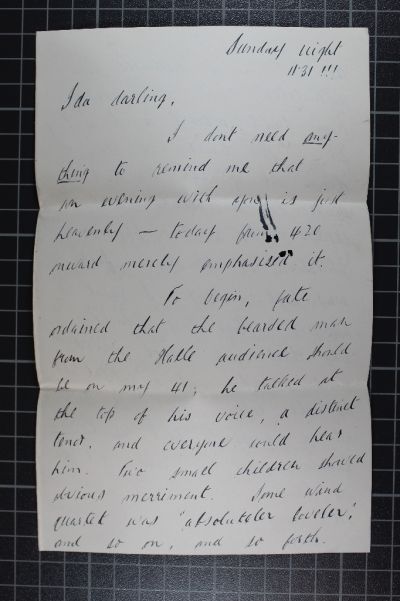 Sunday night
11.31 !!!
Ida darling,
I dont need any-
thing to remind me that
an evening with you is just
heavenly — today from 4.20
onward merely emphasised it.
To begin, fate
ordained that the bearded man
from the Halle audience should
be on my 41; he talked at
the top of his voice, a distinct
tenor, and everyone could hear
him. Two small children showed
obvious merriment. Some wind
quartet was "absoluteler loveler",
and so on, and so forth.